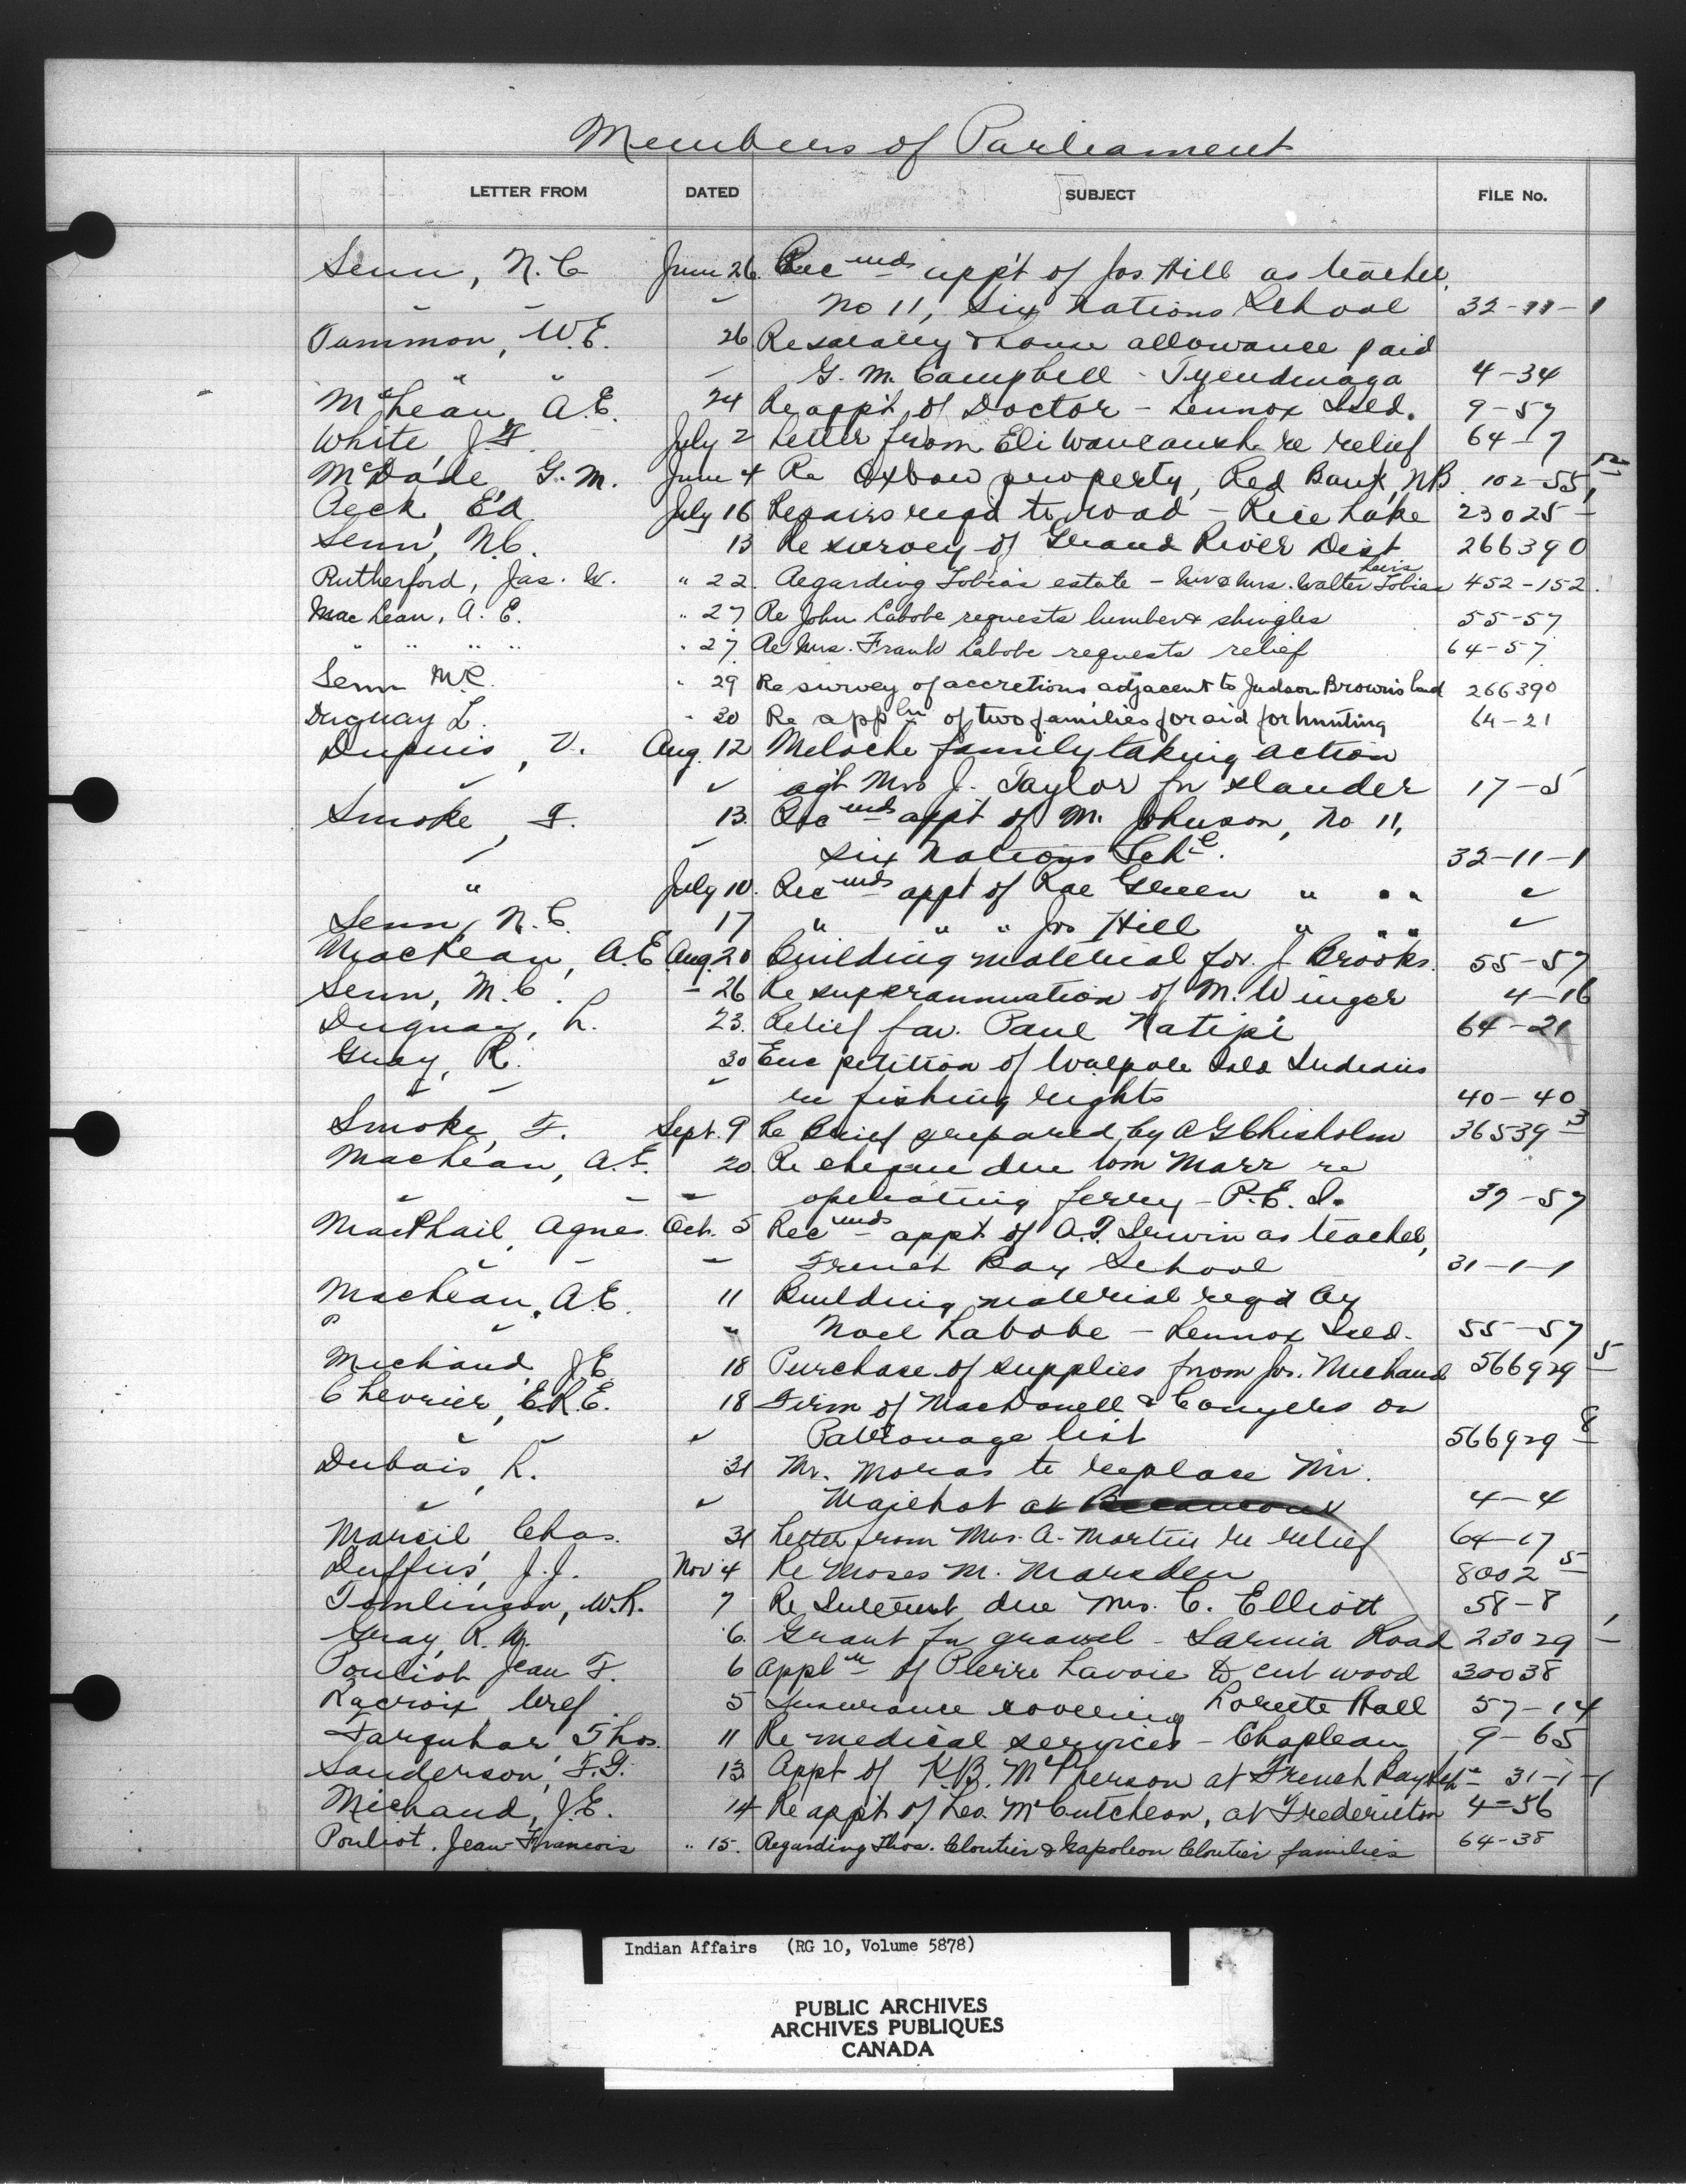 Members of Parliament
LETTER FROM DATED SUBJECT FILE No.
Senn, N.C June 26. Rec mds app't of Jos Hill as teacher,
" " " No 11, Six Nations School 32-11-1
Tummon, W.E. 26 Re salary & house allowance paid
" " " G. M. Campbell - Tyendinaga 4-34
McLean, A.E. 24 Re app't of Doctor - Lennox Isld. 9-57
White, J.F. July 2 Letter from Eli re relief 64-7
McDade, G.M. June 4 Re Oxbow property, Red Bank, NB. 102-55
Peck, Ed July 16 Repairs reqd to road - Rice Lake 23025-
Senn, N.C. 13 Re survey of Grand River Dist 266390
Rutherford, Jas. W. " 22. Regarding Tobias estate - Mr & Mrs. Walter Lewis Tobias 452-152.
MacLean, A. E. " 27 Re John Labobe requests lumber & shingles 55-57
" " " " " 27 Re Mrs. Frank Labobe requests relief 64-57
Senn M.C. " 29 Re survey of accretions adjacent to Judson Brown's land 266390
Duguay L. " 30 Re appln of two families for aid for hunting 64-21
Dupuis, V. Aug. 12 Meloche family taking action
" " agt Mrs J. Taylor for slander 17-5
Smoke, F. 13. Rec mds appt of M. Johnson, No 11,
" " Six Nations Schl. 32-11-1
" July 10. Rec mds appt of Rae Green " " " "
Senn, N.C. 17 " " " Jos Hill " " " "
MacLean, A.E. Aug. 20 Building material for J Brooks. 55-57
Senn, M.C. " 26 Re superannuation of M. Winger 4-16
Duguay, L. 23. Relief fav. Paul Natipi 64-21
Gray, R. 30 Enc petition of Walpole Isld Indians
" " " re fishing rights 40-40
Smoke, F. Sept. 9 Re Brief prepared by A G Chisholm 36539-3
MacLean, A.E. 20 Re cheque due Wm Marr re
" " " operating ferry - P.E.I. 37-57
MacPhail, Agnes. Oct. 5 Rec mds appt of A.T. Irwin as teacher,
" " " French Bay School 31-1-1
MacLean, A.E. 11 Building material reqd by
" " " Noel Labobe - Lennox Isld. 55-57
Michaud, J.E. 18 Purchase of supplies from Jos. Michaud 566929-5
Chevrier, E.R.E. 18 Firm of MacDonell & Conyers on
" " " Patronage list 566929-8
Dubois, L. 31 Mr. Moras to replace Mr.
" " Majehot at 4-4
Marcil, Chas. 31 Letter from Mrs. A. Martin re relief 64-17
Duffus, J.J. Nov 4 Re Moses M. Marsden 8002-5
Tomlinson, W.R. 7 Re Interest due Mrs. C. Elliott 58-8
Gray, R. W. 6. Grant for gravel - Sarnia Road 23029-1
Pouliot Jean F. 6 Appln of Pierre Lavoie to cut wood 30038
Lacroix, Wref 5 Insurance covering Lorette Hall 57-14
Farquhar, Thos. 11 Re medical services - Chapleau 9-65
Sanderson, F.G. 13 Appt of K.B. McPherson at French Bay Schl 31-1-1
Michaud, J.E. 14 Re app't of Leo. McCutcheon, at Fredericton 4-56
Pouliot, Jean-Francois " 15. Regarding Thos. Cloutier & Napoleon Cloutier families 64-38
Indian Affairs (RG 10, Volume 5878)
PUBLIC ARCHIVES
ARCHIVES PUBLIQUES
CANADA